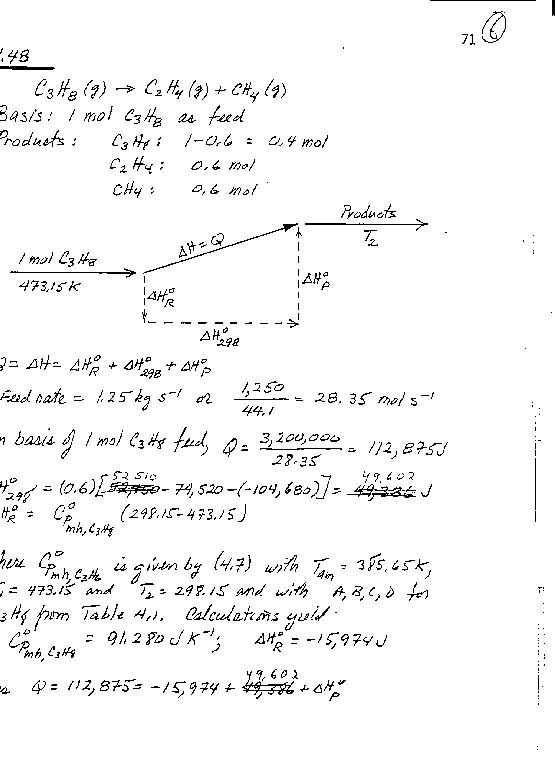 71 6
.48
C3H8 (g) → C2H4 (g) + CH4 (g)
Basis: 1 mol C3H8 as feed
Products: C3H8: 1-0.6 = 0.4 mol
C2H4: 0.6 mol
CH4: 0.6 mol
Products
T2
1 mol C3H8
473.15 K
ΔH=Q
ΔH°R
ΔH°P
ΔH°298
Q = ΔH = ΔH°R + ΔH°298 + ΔH°P
Feed rate = 1.25 kg s⁻¹ or 1,250/44.1 = 28.35 mol s⁻¹
n basis of 1 mol C3H8 feed, Q = 3,200,000/28.35 = 112,875 J
H°298 = (0.6)[52,510 - 74,520 - (-104,680)] = 49,602 J
H°R = C°Pmh,C3H8 (298.15 - 473.15)
here C°Pmh,C3H8 is given by (4.7) with Tam = 385.65 K,
= 473.15 and T2 = 298.15 and with A, B, C, D for
3H8 from Table 4.1. Calculations yield
C°Pmh,C3H8 = 91.280 J K⁻¹; ΔH°R = -15,974 J
Q = 112,875 = -15,974 + 49,602 + ΔH°P